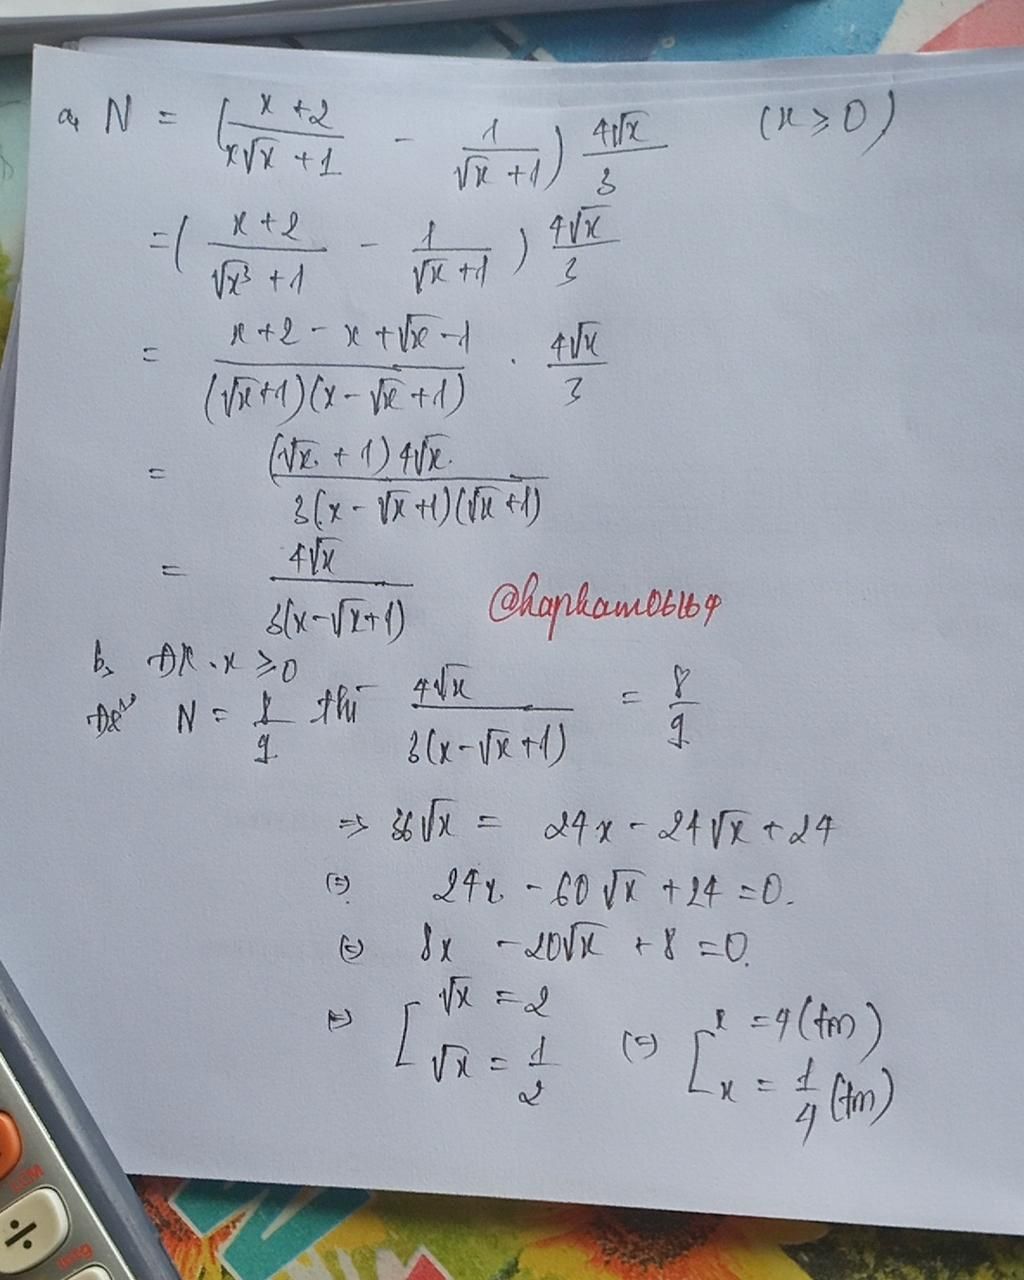 a, N = (x+2 / x√x + 1 - 1 / √x + 1) 4√x / 3 (x ≥ 0)
= (x+2 / √x³ + 1 - 1 / √x + 1) 4√x / 3
= x+2 - x + √x - 1 / (√x+1)(x - √x + 1) . 4√x / 3
= (√x + 1) 4√x / 3(x - √x + 1)(√x + 1)
= 4√x / 3(x - √x + 1)
@hapham06164
b, ĐK . x ≥ 0
Để N = 8/9 thì 4√x / 3(x - √x + 1) = 8/9
=> 36√x = 24x - 24√x + 24
(=) 24x - 60√x + 24 = 0.
(=) 8x - 20√x + 8 = 0.
(=) [ √x = 2 (=) [ x = 4 (tm)
√x = 1/2 x = 1/4 (tm)
GCM
÷